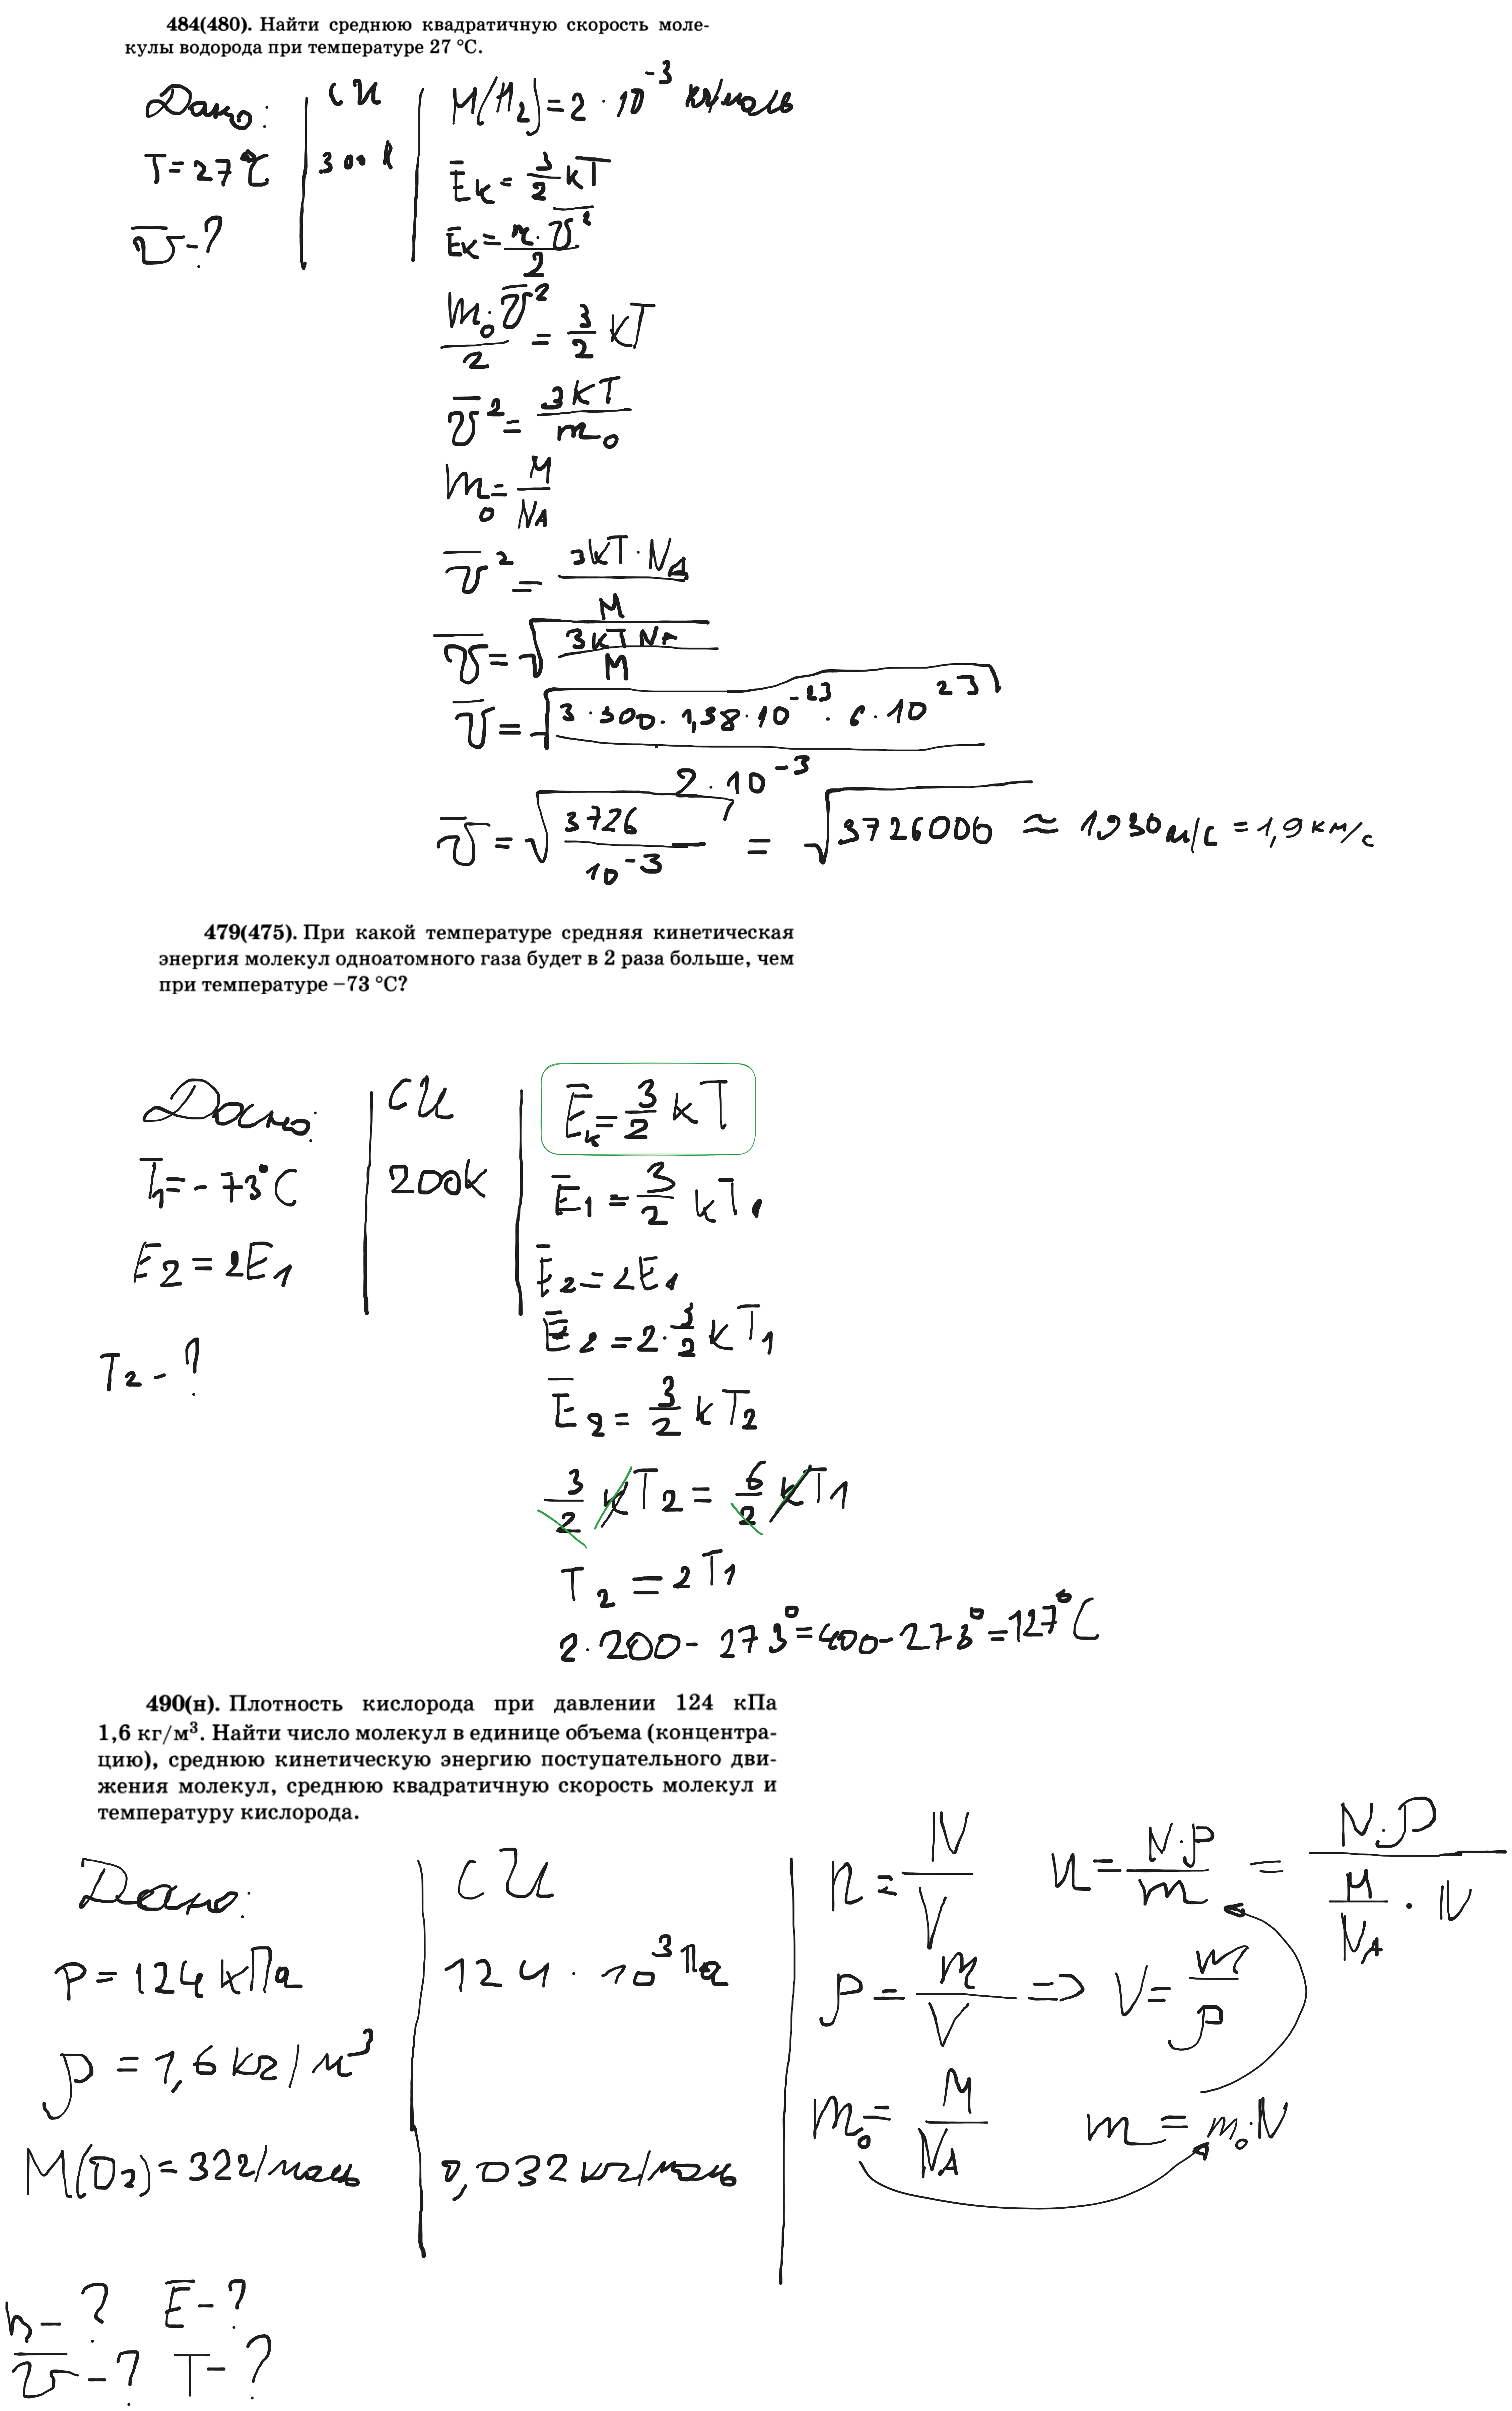 484(480). Найти среднюю квадратичную скорость моле-
кулы водорода при температуре 27 °С.
Дано:
T=27°C
v̅-?
СИ
300 K
M(H₂)=2·10⁻³ кг/моль
E̅к=3/2 kT
E̅к=m·v̅²/2
m₀·v̅²/2 = 3/2 kT
v̅²=3kT/m₀
m₀=M/NA
v̅²=3kT·NA/M
v̅=√(3kTNA/M)
v̅=√(3·300·1,38·10⁻²³·6·10²³/2·10⁻³)
v̅=√(3726/10⁻³) = √3726000 ≈ 1930м/с =1,9км/с
479(475). При какой температуре средняя кинетическая
энергия молекул одноатомного газа будет в 2 раза больше, чем
при температуре −73 °С?
Дано:
T₁=-73°C
E₂=2E₁
T₂-?
СИ
200K
E̅к=3/2 kT
E̅₁=3/2 kT₁
E̅₂=2E₁
E̅₂=2·3/2 kT₁
E̅₂=3/2 kT₂
3/2 kT₂=6/2 kT₁
T₂=2T₁
2·200-273°=400-273°=127°C
490(н). Плотность кислорода при давлении 124 кПа
1,6 кг/м³. Найти число молекул в единице объема (концентра-
цию), среднюю кинетическую энергию поступательного дви-
жения молекул, среднюю квадратичную скорость молекул и
температуру кислорода.
Дано:
P=124 кПа
ρ=1,6 кг/м³
M(O₂)=32г/моль
n-? E̅-?
v̅-? T-?
СИ
124·10³Па
0,032 кг/моль
n=N/V n=N·ρ/m = N·ρ/(M/NA·N)
ρ=m/V => V=m/ρ
m₀=M/NA m=m₀·N